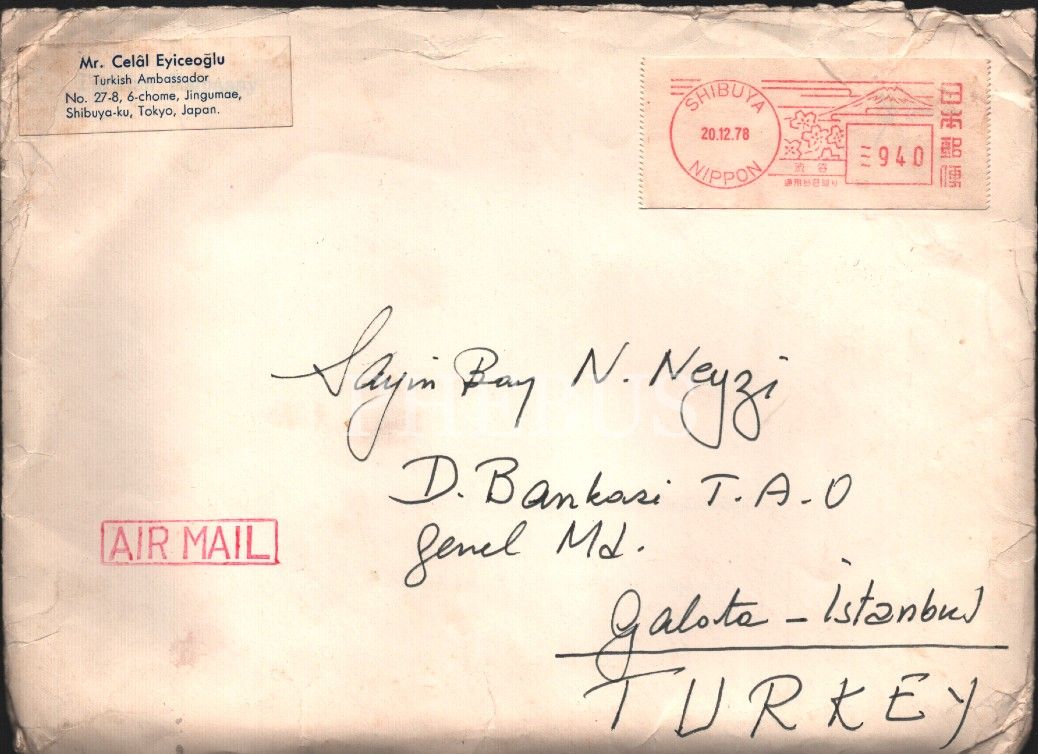 Mr. Celâl Eyiceoğlu
Turkish Ambassador
No. 27-8, 6-chome, Jingumae,
Shibuya-ku, Tokyo, Japan.
SHIBUYA
20.12.78
NIPPON
940
渋谷
日本郵便
Sayın Bay N. Neyzi
PHEBUS
D. Bankası T.A.O
Genel Md.
AIR MAIL
Galata - İstanbul
TURKEY